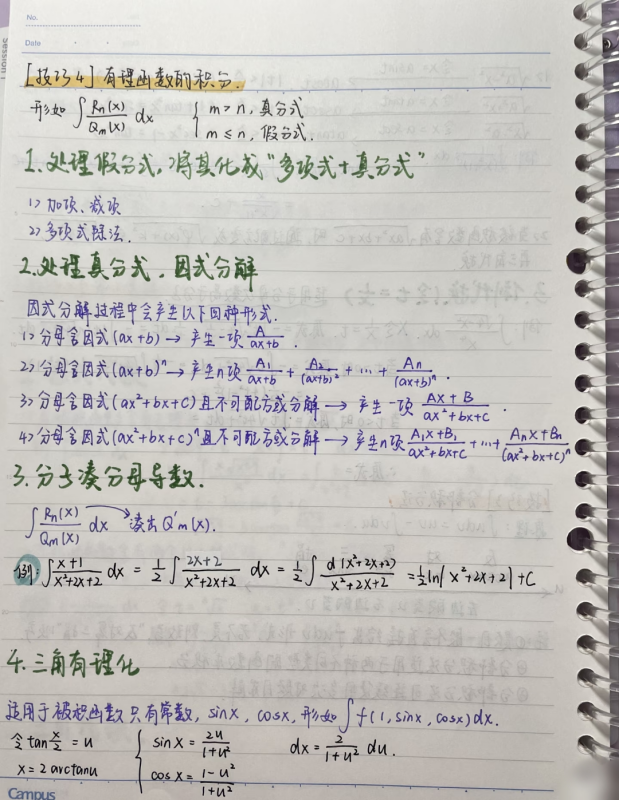 No.
Date
[技巧4] 有理函数的积分.
形如 ∫ Rn(x)/Qm(x) dx { m > n, 真分式
m ≤ n, 假分式.
1.处理假分式,将其化成“多项式+真分式”
1) 加项、减项
2) 多项式除法.
2.处理真分式,因式分解
因式分解过程中会产生以下四种形式.
1) 分母含因式(ax+b) → 产生一项 A/(ax+b) .
2) 分母含因式(ax+b)ⁿ → 产生n项 A₁/(ax+b) + A₂/(ax+b)² + ... + An/(ax+b)ⁿ .
3) 分母含因式(ax²+bx+c)且不可配方或分解 → 产生一项 (Ax+B)/(ax²+bx+c) .
4) 分母含因式(ax²+bx+c)ⁿ且不可配方或分解 → 产生n项 (A₁x+B₁)/(ax²+bx+c) + ... + (Anx+Bn)/(ax²+bx+c)ⁿ
3.分子凑分母导数.
∫ Rn(x)/Qm(x) dx → 凑出Q'm(x).
例: ∫ (x+1)/(x²+2x+2) dx = 1/2 ∫ (2x+2)/(x²+2x+2) dx = 1/2 ∫ d(x²+2x+2)/(x²+2x+2) = 1/2 ln|x²+2x+2| + C
4.三角有理化
适用于被积函数只有常数, sinx, cosx, 形如 ∫ f(1, sinx, cosx) dx.
令 tan x/2 = u { sin x = 2u/(1+u²) dx = 2/(1+u²) du.
x = 2 arctanu cos x = (1-u²)/(1+u²)
Campus